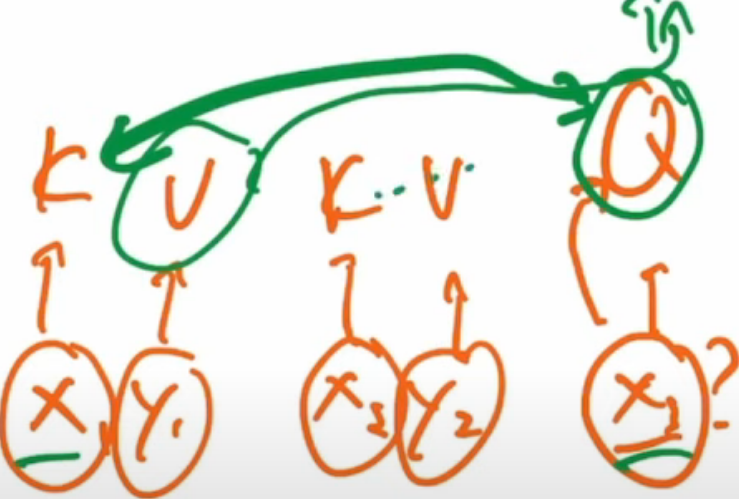 K V K V Q
X₁ Y₁ X₂ Y₂ X₃ ?